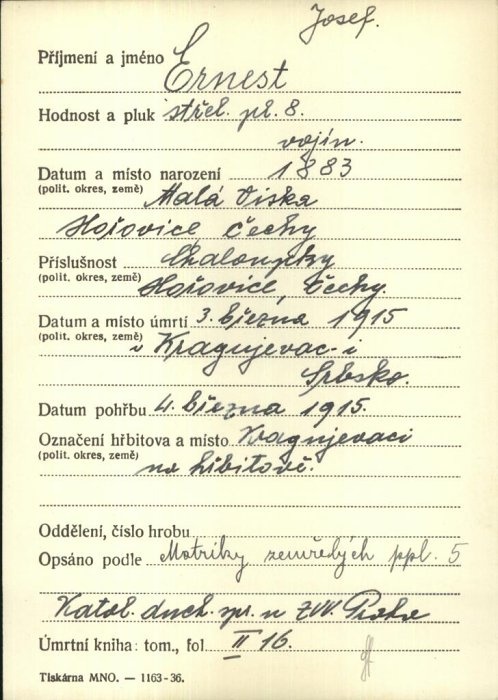 Josef.
Příjmení a jméno Ernest
Hodnost a pluk střel. pl. 8.
vojín.
Datum a místo narození 1883
(polit. okres, země) Malá Viska
Hořovice Čechy
Příslušnost Chaloupky
(polit. okres, země) Hořovice, Čechy.
Datum a místo úmrtí 3. března 1915
(polit. okres, země) v Kragujevac-i
Srbsko.
Datum pohřbu 4. března 1915.
Označení hřbitova a místo Kragujevaci
(polit. okres, země) na hřbitově.
Oddělení, číslo hrobu
Opsáno podle Matriky zemřelých ppl. 5
Katol. duch. spr. u ZVV. Praha
Úmrtní kniha: tom., fol. II 16.
Tiskárna MNO. — 1163-36.